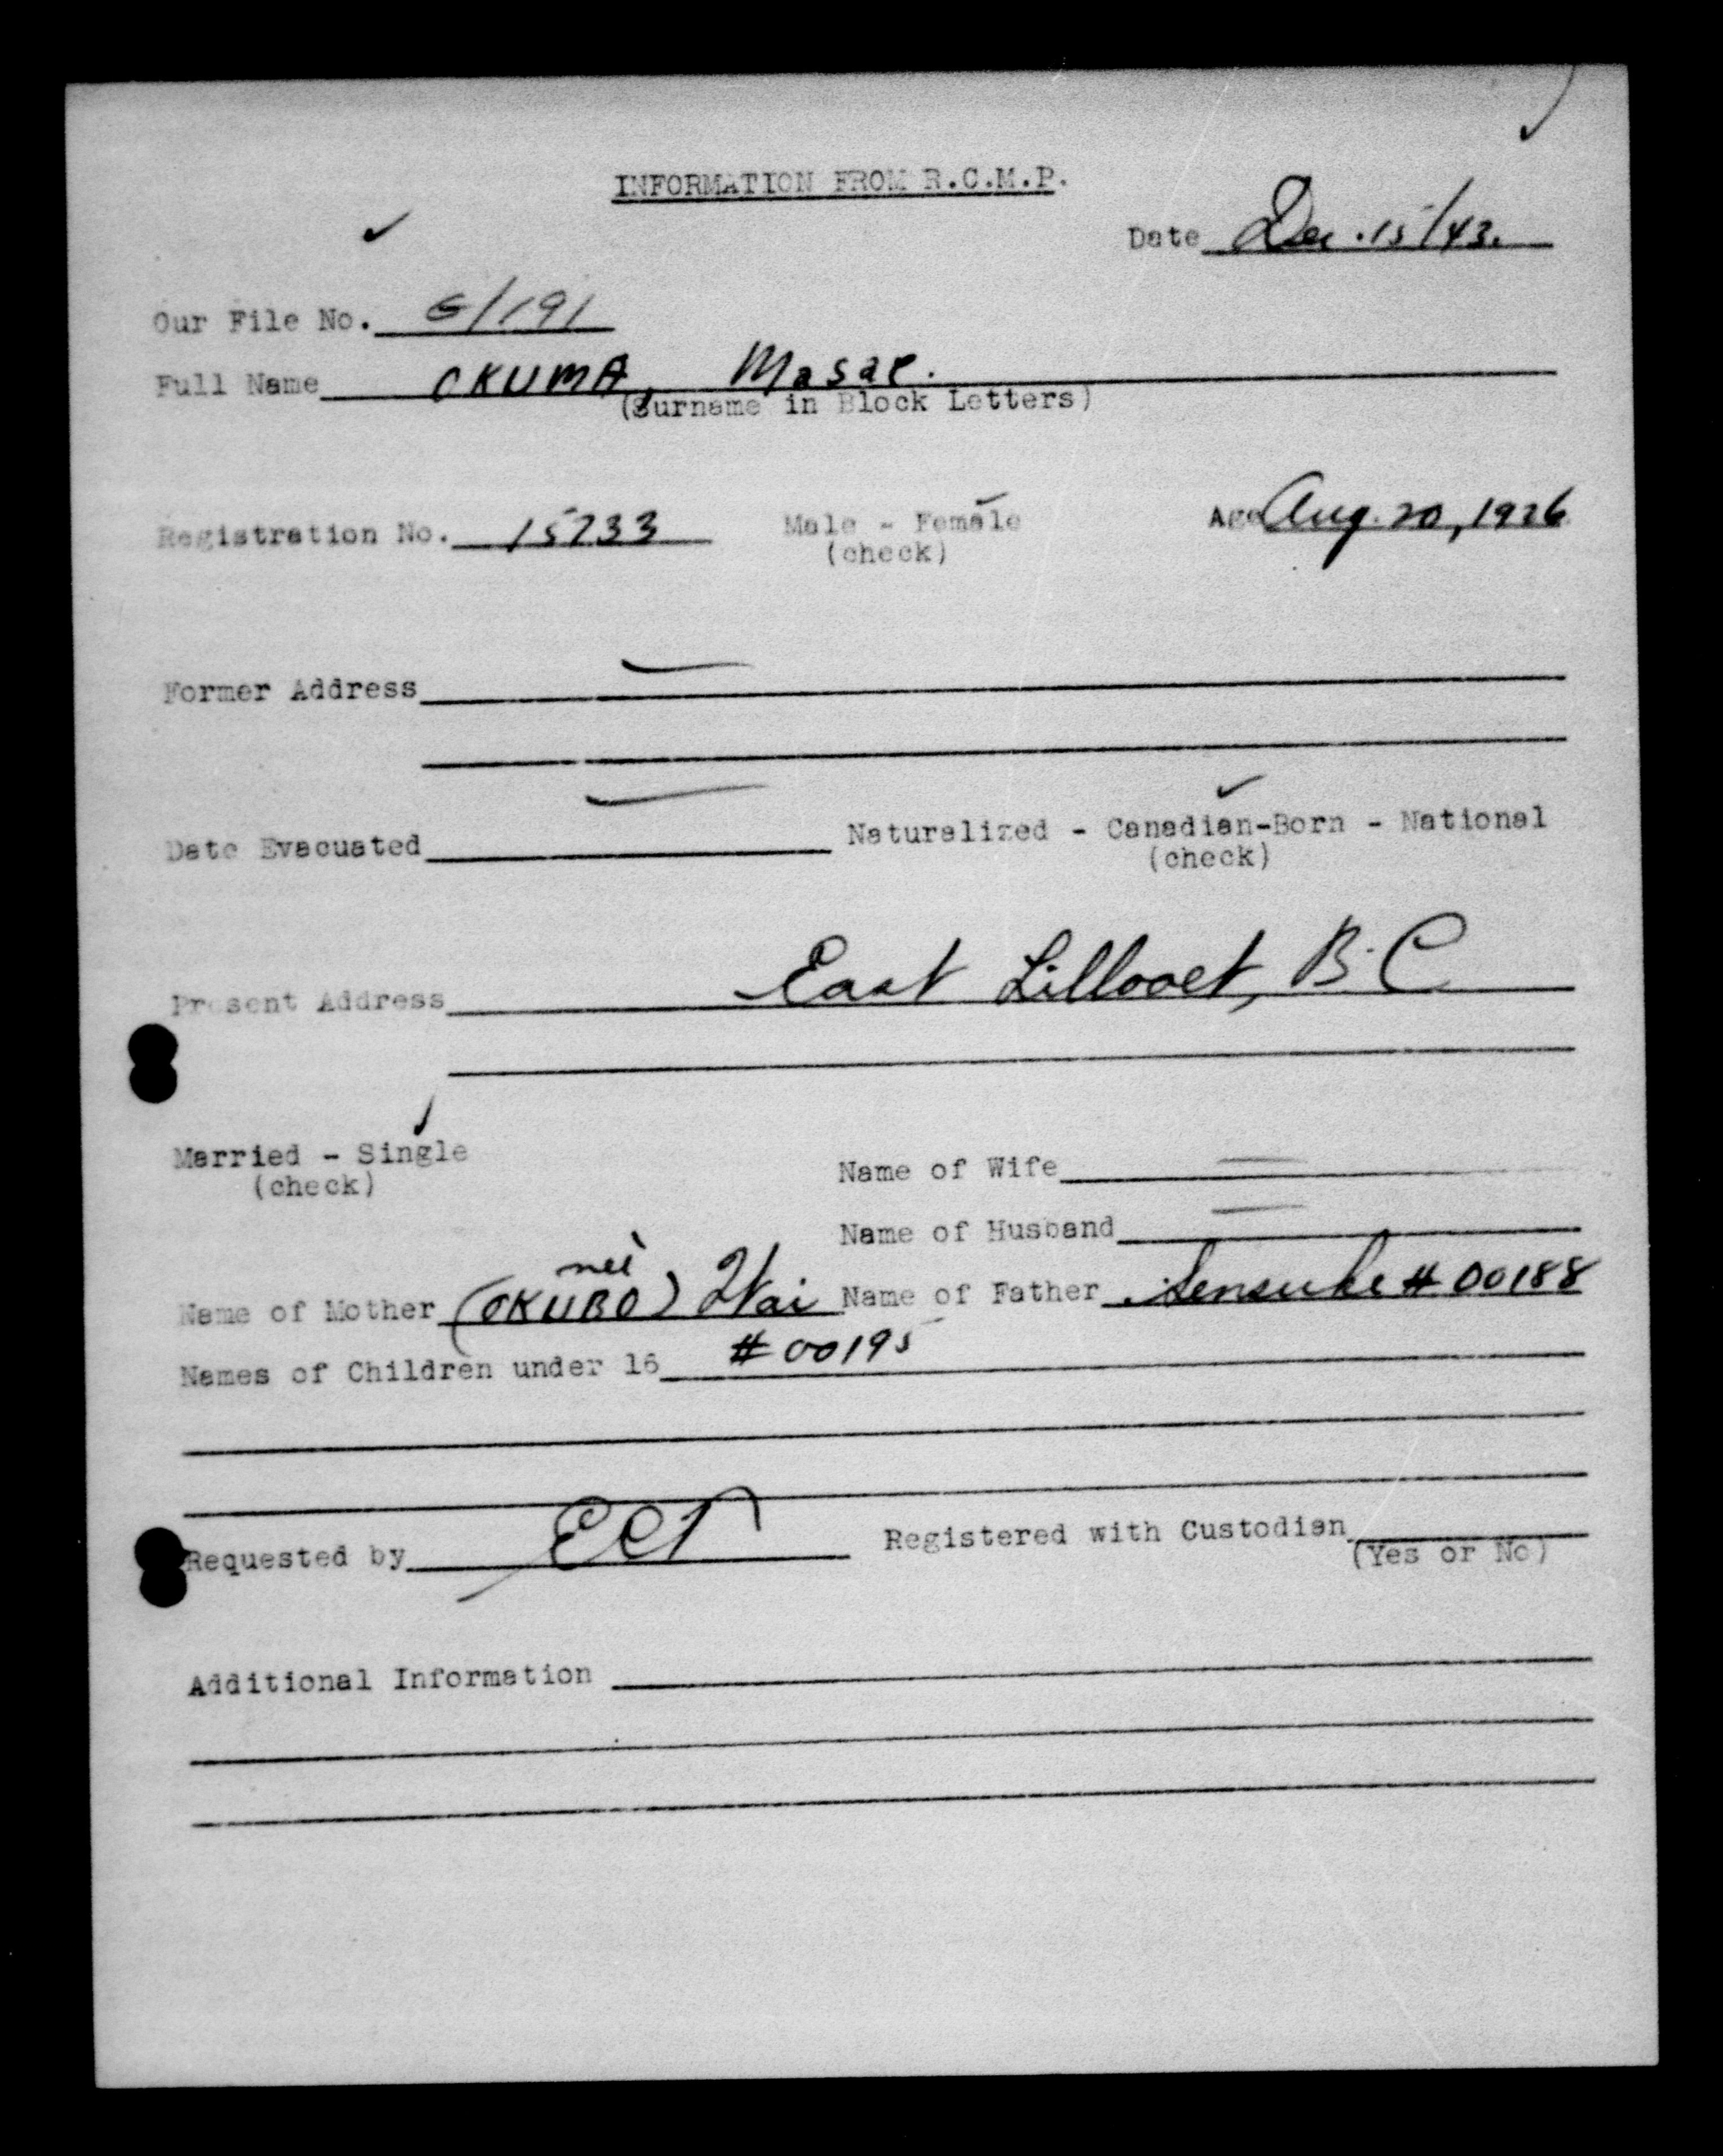 INFORMATION FROM R.C.M.P.
Date Dec. 15/43.
Our File No. 
Full Name OKUMA, Masae.
(Surname in Block Letters)
Registration No. 15733 Male - Female Age Aug. 20, 1926
(check)
Former Address
Date Evacuated Naturalized - Canadian-Born - National
(check)
Present Address East Lillooet, B.C
Married - Single
(check)
Name of Wife
Name of Husband
neè
Name of Mother (OKUBO) Name of Father Sensuke # 00188
Names of Children under 16 # 00195
Requested by Registered with Custodian
(Yes or No)
Additional Information